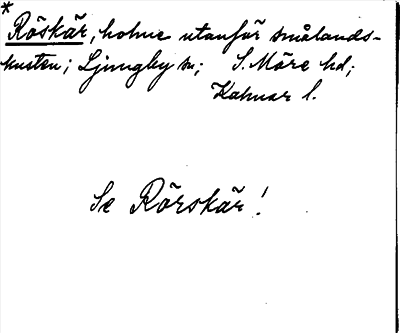 * Röskär, holme utanför smålands-
kusten; Ljungby sn; S. Möre hd;
Kalmar l.
Se Rörskär!